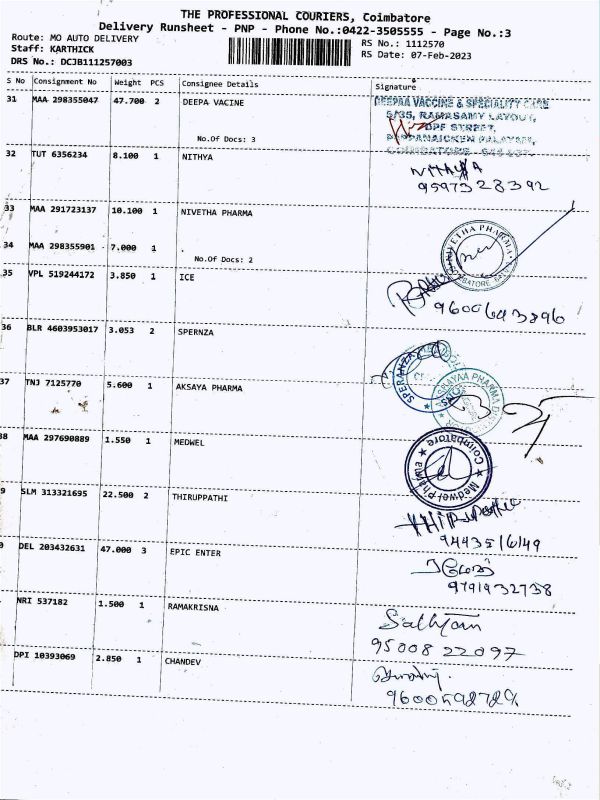 THE PROFESSIONAL COURIERS, Coimbatore
Delivery Runsheet - PNP - Phone No.:0422-3505555 - Page No.:3
Route: MO AUTO DELIVERY
RS No.: 1112570
Staff: KARTHICK
RS Date: 07-Feb-2023
DRS No.: DCJB111257003
S No Consignment No Weight PCS Consignee Details Signature
31 MAA 298355047 47.700 2 DEEPA VACINE
No.Of Docs: 3
DEEPAA VACCINE & SPECIALITY CARE
5/35, RAMASAMY LAYOUT,
STREET,
PAPPANAICKEN PALAYAM,
COIMBATORE
32 TUT 6356234 8.100 1 NITHYA
NITHYA
9597328392
33 MAA 291723137 10.100 1 NIVETHA PHARMA
NIVETHA PHARMA
34 MAA 298355901 7.000 1
No.Of Docs: 2
35 VPL 519244172 3.850 1 ICE
9600643896
36 BLR 4603953017 3.053 2 SPERNZA
SPERANZA
37 TNJ 7125770 5.600 1 AKSAYA PHARMA
PHARMA
38 MAA 297690889 1.550 1 MEDWEL
Medwel Pharma
Coimbatore
9 SLM 313321695 22.500 2 THIRUPPATHI
9443516149
0 DEL 203432631 47.000 3 EPIC ENTER
9791932738
NRI 537182 1.500 1 RAMAKRISNA
Sathyam
9500822097
DPI 10393069 2.850 1 CHANDEV